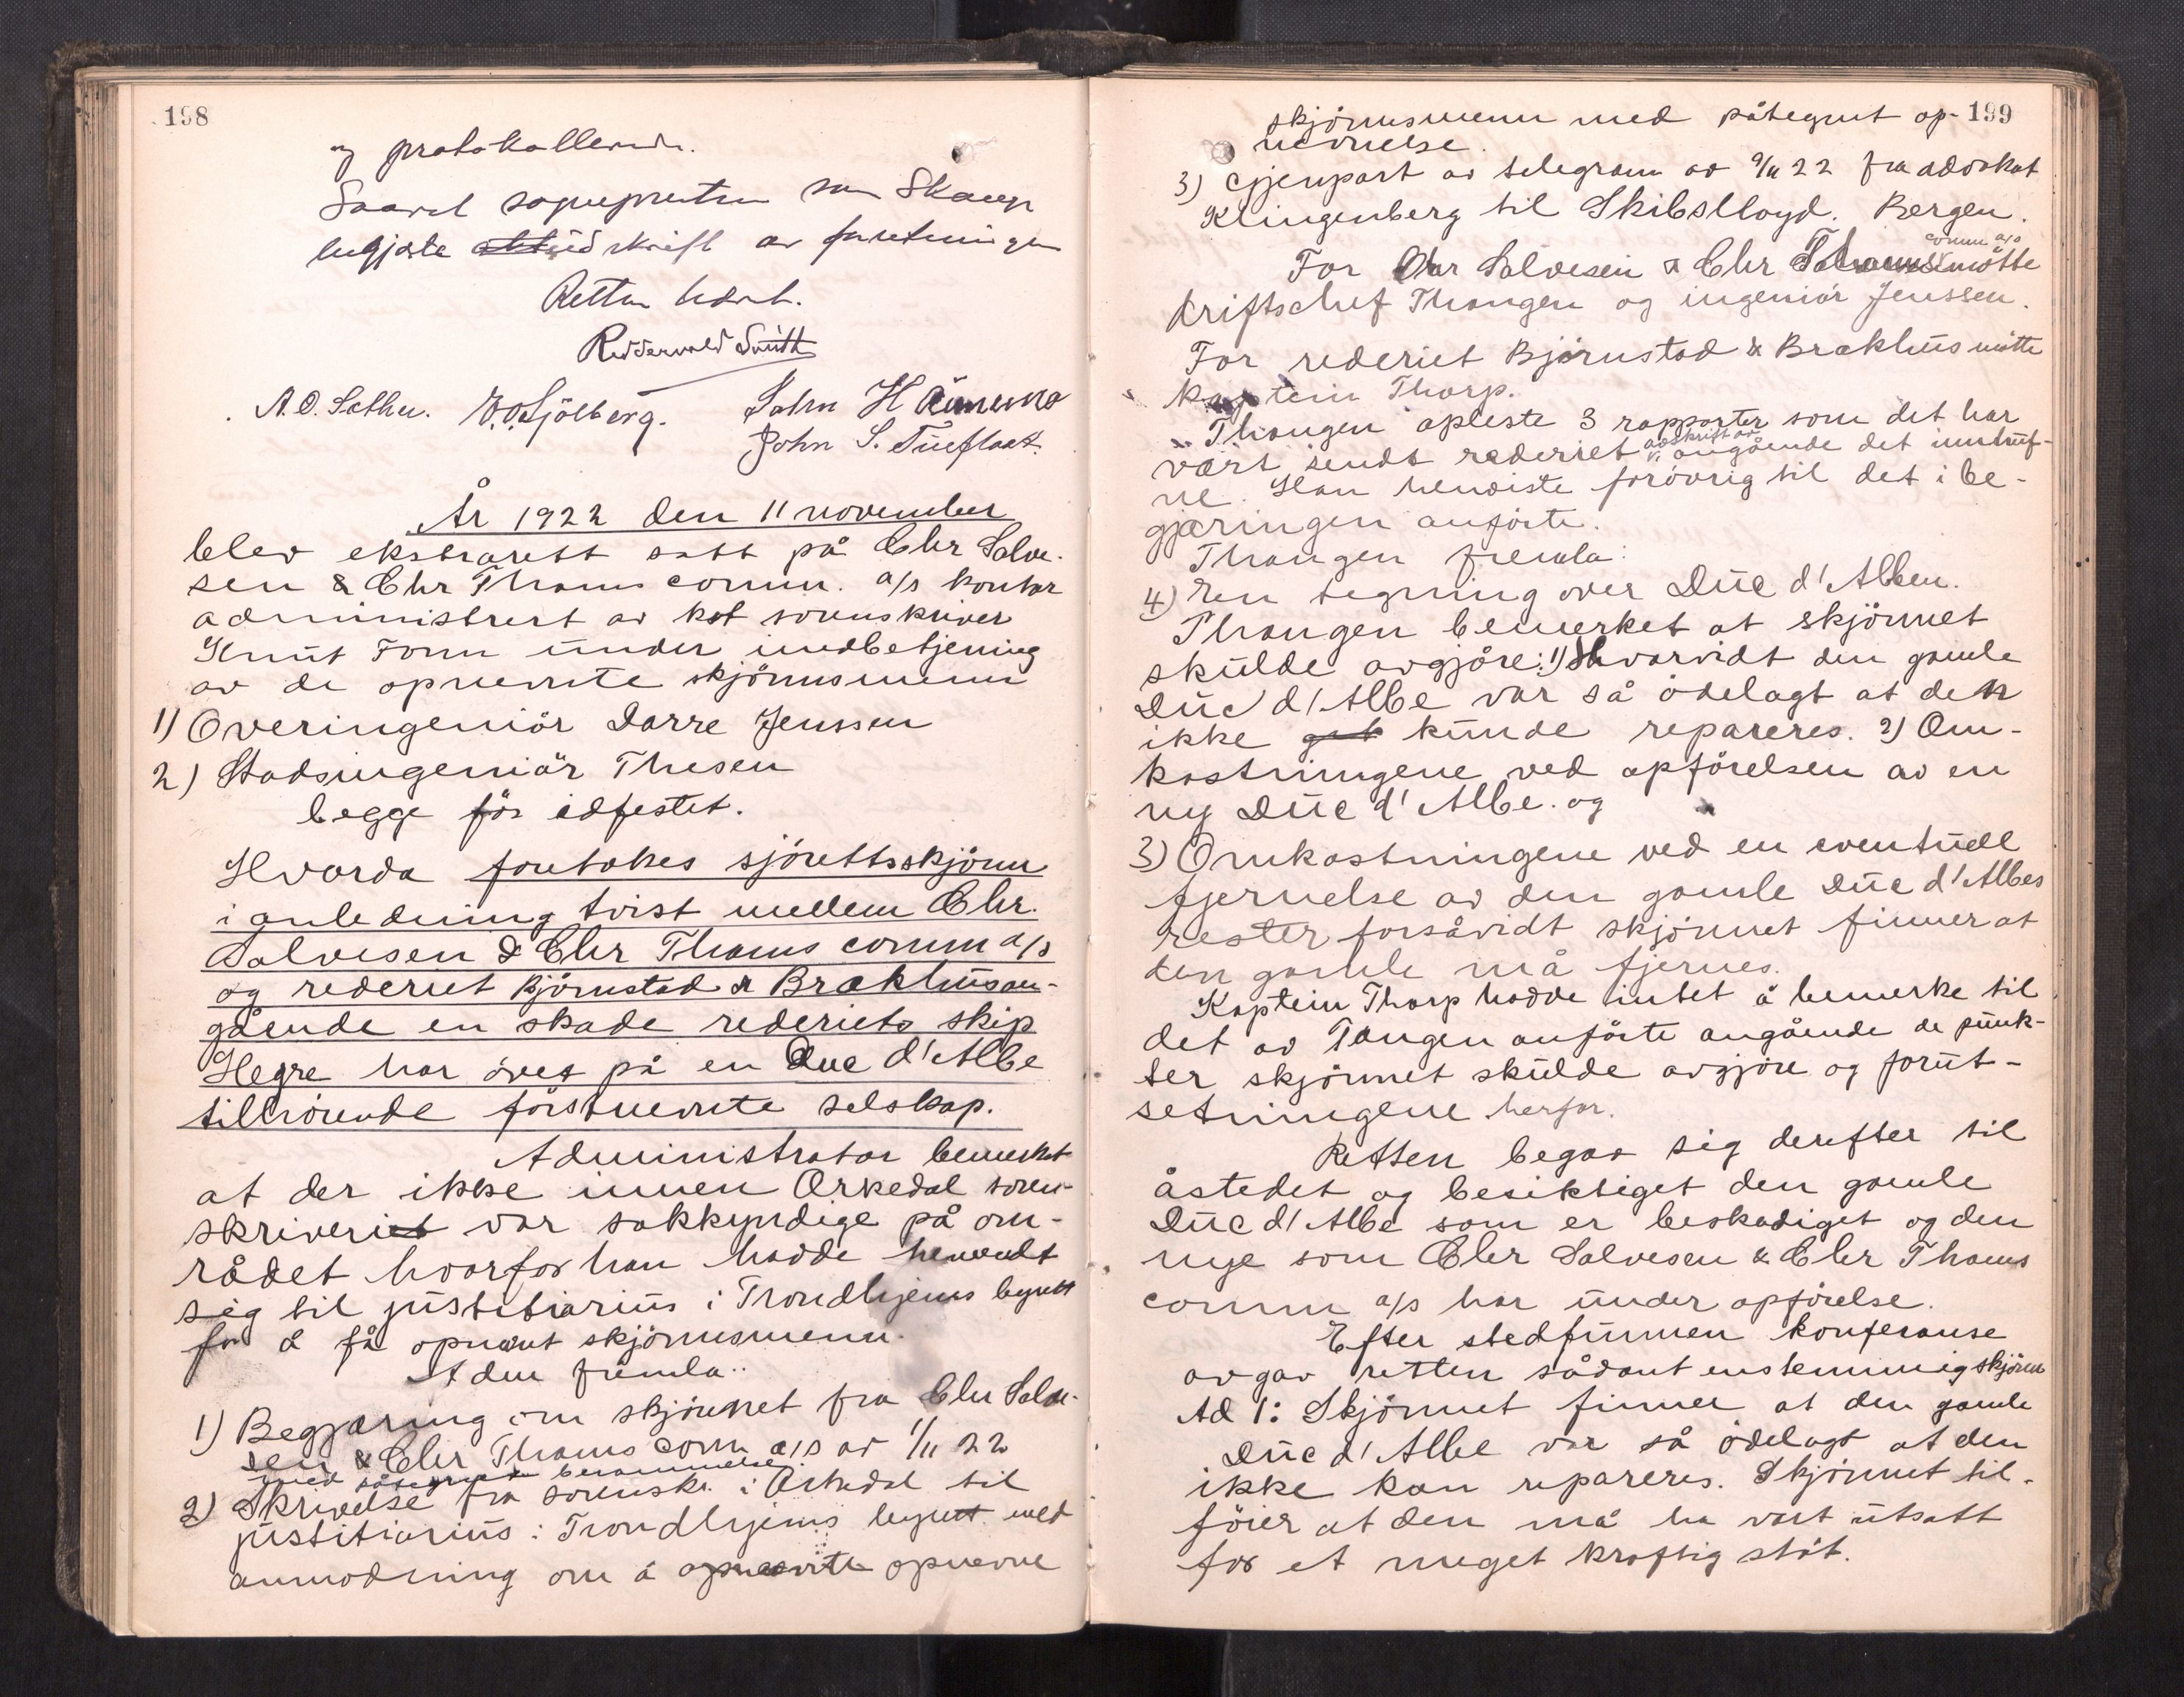 198
og protokollerende.
Saavel sagvepreten som Skaug
begjærte utskrift av forretningen
Retten hævet.
Reddervold Smith
A.O. Sæther. E.O. Sjölberg. John H Rönmo
John S. Tueflaat.
År 1922 den 11 november
blev ekstrarett satt på Chr Salve-
sen & Chr Thams comm. a/s kontor
administrert av kst sorenskriver
Knut Fonn under innbetjening
av de opnevnte skjönnsmenn
1) Overingeniör Darre Jenssen
2) Stadsingeniör Thesen
begge för edfestet.
Hvorda foretokes sjörettsskjönn
i anledning tvist mellem Chr.
Salvesen & Chr Thams comm a/s
og rederiet Bjørnstad & Brækhus an-
gående en skade rederiets skip
Hegre har övet på en Duc d'Albe
tilhörende förstnevnte selskap.
Administrator bemerket
at der ikke innen Orkedal soren-
skriveriet var sakkyndige på om-
rådet hvorfor han hadde henvendt
sig til justitiarius i Trondhjems byrett
for å få opnevnt skjönnsmenn.
Adm fremla:
1) Begjæring om skjönnet fra Chr Salve-
sen & Chr Thams comm a/s av 1/11 22
med påtegnet berammelse.
2) Skrivelse fra sorenskr. i Orkedal til
justitiarius i Trondhjems byrett med
anmodning om å opnevnte opnevne
199
skjönnsmenn med påtegnet op-
nevnelse.
3) Gjenpart av telegram av 9/11 22 fra advokat
Klingenberg til Skibslloyd. Bergen.
comm a/s
For Chr Salvesen & Chr Thams mötte
driftschef Thangen og ingeniör Jenssen.
For rederiet Björnstad & Brækhus mötte
kaptein Thorp.
Thangen opleste 3 rapporter som det har
avskrift av
vært sendt rederiet angående det inntruf-
ne. Han henviste forövrig til det i be-
gjæringen anförte.
Thangen fremla:
4) En tegning over Duc d'Alben.
Thangen bemerket at skjönnet
skulde avgjöre: 1) Hvorvidt den gamle
Duc d'Albe var så ödelagt at den
ikke kunde repareres. 2) Om-
kostningene ved opförelsen av en
ny Duc d'Albe. og
3) Omkostningene ved en eventuell
fjernelse av den gamle Duc d'Albes
rester forsåvidt skjönnet finner at
den gamle må fjernes.
Kaptein Thorp hadde intet å bemerke til
det av Tangen anförte angående de punk-
ter skjönnet skulde avgjöre og forut-
setningene herfor.
Retten begav sig derefter til
åstedet og besiktiget den gamle
Duc d'Albe som er beskadiget og den
nye som Chr Salvesen & Chr Thams
comm a/s har under opförelse.
Efter stedfunnen konferanse
avgav retten sådant enstemmig skjönn
Ad 1: Skjönnet finner at den gamle
Duc d'Albe var så ödelagt at den
ikke kan repareres. Skjönnet til-
föier at den må ha vært utsatt
for et meget kraftig stöt.